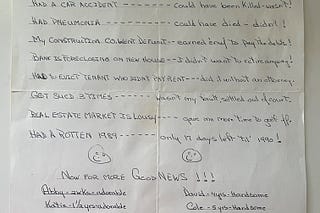 HAD A CAR ACCIDENT ------- could have been killed - wasn't!
HAD PNEUMONIA ------- could have died - didn't!
MY CONSTRUCTION CO. WENT DEFUNCT - earned enuf to pay the debts!
BANK IS FORECLOSING ON NEW HOUSE - I didn't want to retire anyway!
HAD TO EVICT TENANT WHO DIDN'T PAY RENT --- did it without an attorney.
GOT SUED 3 TIMES ------- wasn't my fault, settled out of court.
REAL ESTATE MARKET IS LOUSY ---- gave me more time to goof off.
HAD A ROTTEN 1989 -------- only 17 days left 'til' 1990!
NOW FOR MORE GOOD NEWS !!!
Abby - adorable David - 4yrs - Handsome
Katie - 1½yrs - adorable Cole - 5yrs - Handsome